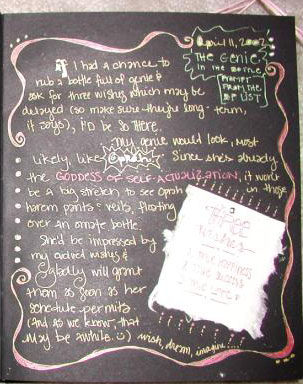 April 11, 2003
THE GENIE
IN THE BOTTLE
PROMPT
FROM THE
LIST
If I had a chance to
rub a bottle full of genie &
ask for three wishes which may be
delayed (so make sure they're long-term,
it says), I'D be SO THERE.
my genie would look, most
Likely, like Oprah. Since she's already
the GODDESS OF SELF-ACTUALIZATION, it won't
be a big stretch to see Oprah in those
harem pants & veils, floating
over an ornate bottle.
She'd be impressed by
my wishes &
will grant
them as soon as her
schedule permits.
(And as we know, that
may be awhile. :) wish, dream, imagine....
Three